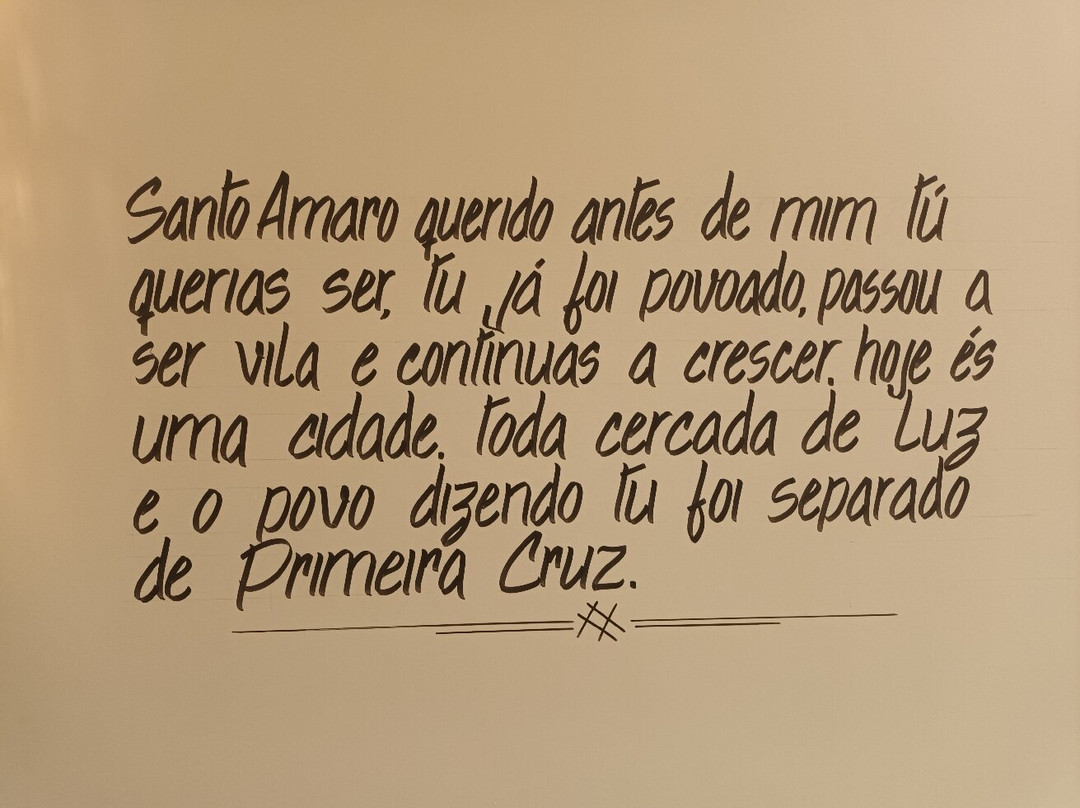 Santo Amaro querido antes de mim tú
querias ser, tu já foi povoado, passou a
ser vila e continuas a crescer. hoje és
uma cidade. toda cercada de Luz
e o povo dizendo tu foi separado
de Primeira Cruz.